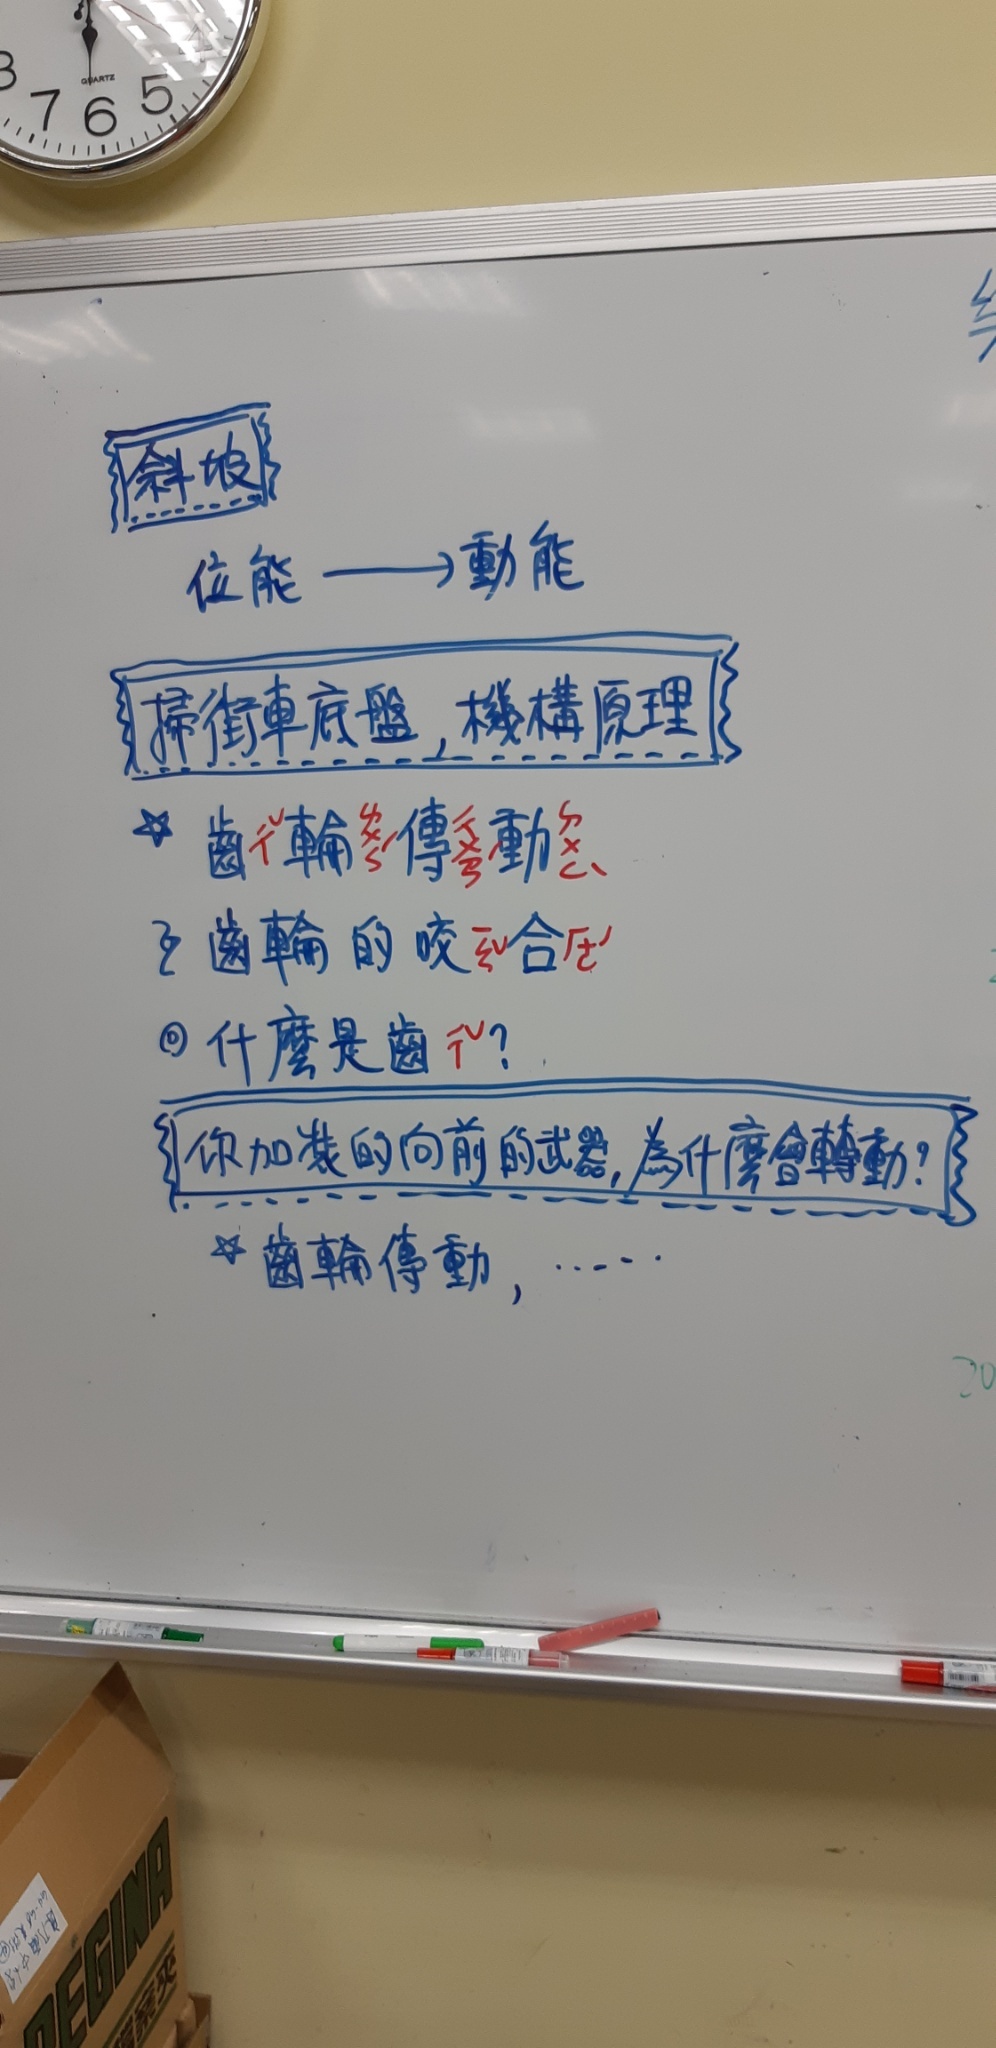 8
7
6
5
QUARTZ
斜坡
位能 → 動能
掃街車底盤, 機構原理
☆ 齒ㄔˇ輪ㄌㄨㄣˊ傳ㄔㄨㄢˊ動ㄉㄨㄥˋ
齒輪的咬ㄧㄠˇ合ㄏㄜˊ
◎ 什麼是齒ㄔˇ?
你加裝的向前的武器, 為什麼會轉動?
☆ 齒輪傳動, ......
20
REGINA